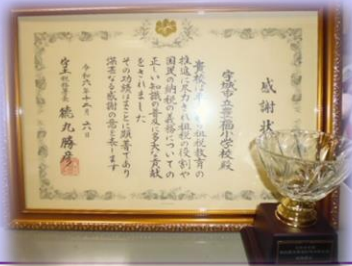 感謝状
宇城市立豊福小学校殿
貴校は早くから租税教育の
推進に尽力され租税の役割や
国民の納税の義務についての
正しい知識の普及に多大な貢献
をされました
その功績はまことに顕著であり
深甚なる感謝の意を表します
令和六年十二月六日
宇土税務署長
徳丸勝彦